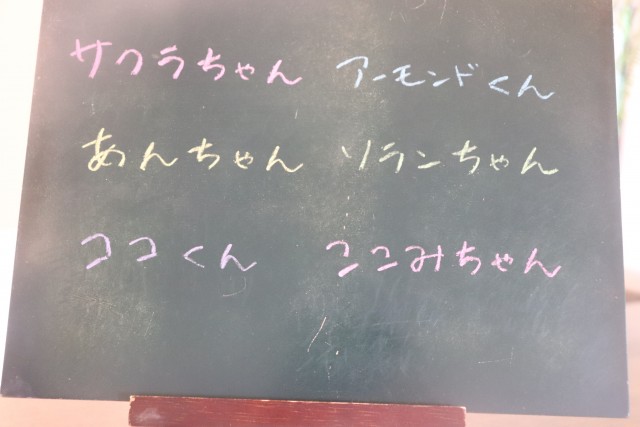 サクラちゃん アーモンドくん
あんちゃん ソランちゃん
ココくん ここみちゃん